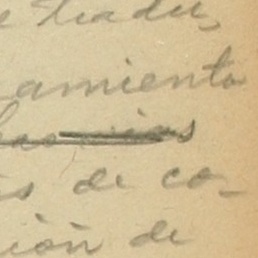 e tradu,
amiento
s de co-
ión de